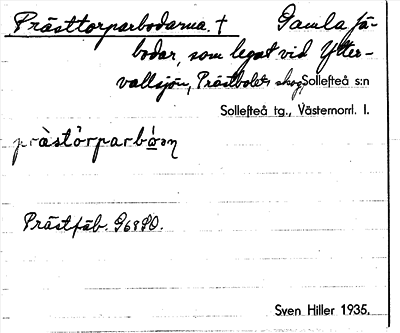 Prästtorparbodarna. † Gamla fä-
bodar, som legat vid Ytter-
vallsjön, Prästbolets skog, Sollefteå s:n
Sollefteå tg., Västernorrl. l.
Prästfäb. G6880.
Sven Hiller 1935.